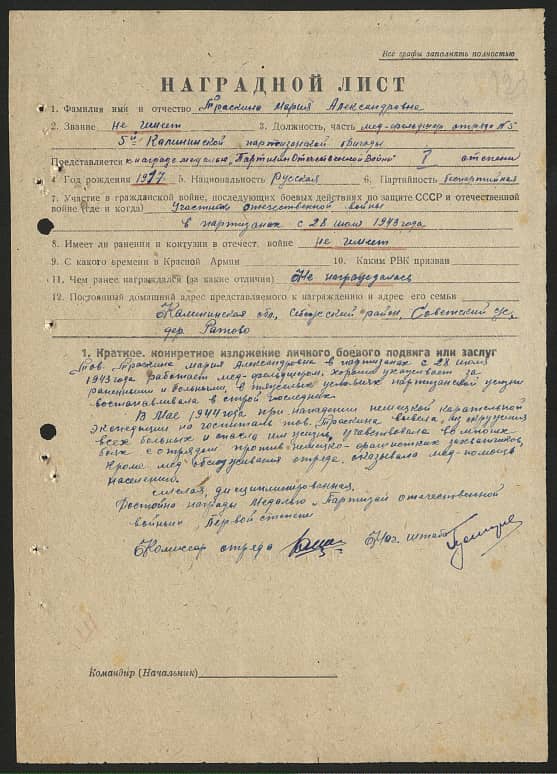 Все графы заполнять полностью
НАГРАДНОЙ ЛИСТ
1. Фамилия имя и отчество Траскина Мария Александровна
2. Звание не имеет 3. Должность, часть мед-фельдшер отряда №5
5ой Калининской партизанской бригады
Представляется к награде медалью "Партизан Отечественной Войны" I степени
4. Год рождения 1917 5. Национальность Русская 6. Партийность беспартийная
7. Участие в гражданской войне, последующих боевых действиях по защите СССР и отечественной
войне (где и когда) Участник отечественной войны
в партизанах с 28 июля 1943 года
8. Имеет ли ранения и контузии в отечест. войне не имеет
9. С какого времени в Красной Армии 10. Каким РВК призван
11. Чем ранее награждался (за какие отличия) Не награждалась
12. Постоянный домашний адрес представляемого к награждению и адрес его семьи
Калининская обл, Себежский район, Советский
дер.
1. Краткое, конкретное изложение личного боевого подвига или заслуг
Тов. Траскина Мария Александровна в партизанах с 28 июля
1943 года работает мед-фельдшером, хорошо ухаживает за
ранеными и больными, в тяжелых условиях партизанской жизни
восстанавливала в строй последних.
В Мае 1944 года при нападении немецкой карательной
экспедиции на госпиталь тов. Траскина вывела из окружения
всех больных и спасла им жизнь, участвовала во многих
боях с отрядом против немецко-фашистских захватчиков,
Кроме мед. обслуживания отряда, оказывала мед-помощь
населению.
смелая, дисциплинированная,
Достойна награды Медалью "Партизан отечественной
войны" Первой степени
Комиссар отряда Нач. штаба
Командир (Начальник)